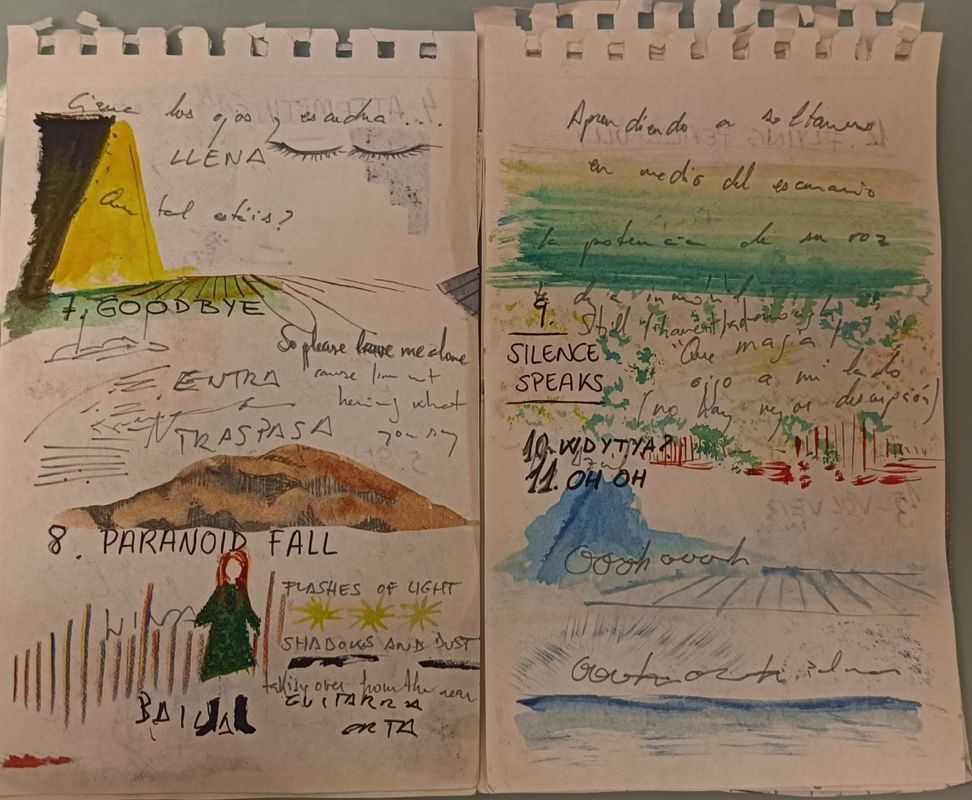 Cierra los ojos y escucha....
LLENA
Qué tal estáis?
7. GOODBYE
So please leave me alone
cause I'm not
hearing what
you say
ENTRA
TRASPASA
8. PARANOID FALL
LINDA
FLASHES OF LIGHT
SHADOWS AND DUST
taking over from the rear
GUITARRA
BAILA
Aprendiendo a soltarme
en medio del escenario
la potencia de su voz
9.
Still
SILENCE
SPEAKS
"Que maja!"
oigo a mi lado
(no hay mejor descripción)
10. WDYTYA?
11. OH OH
Oooh oooh